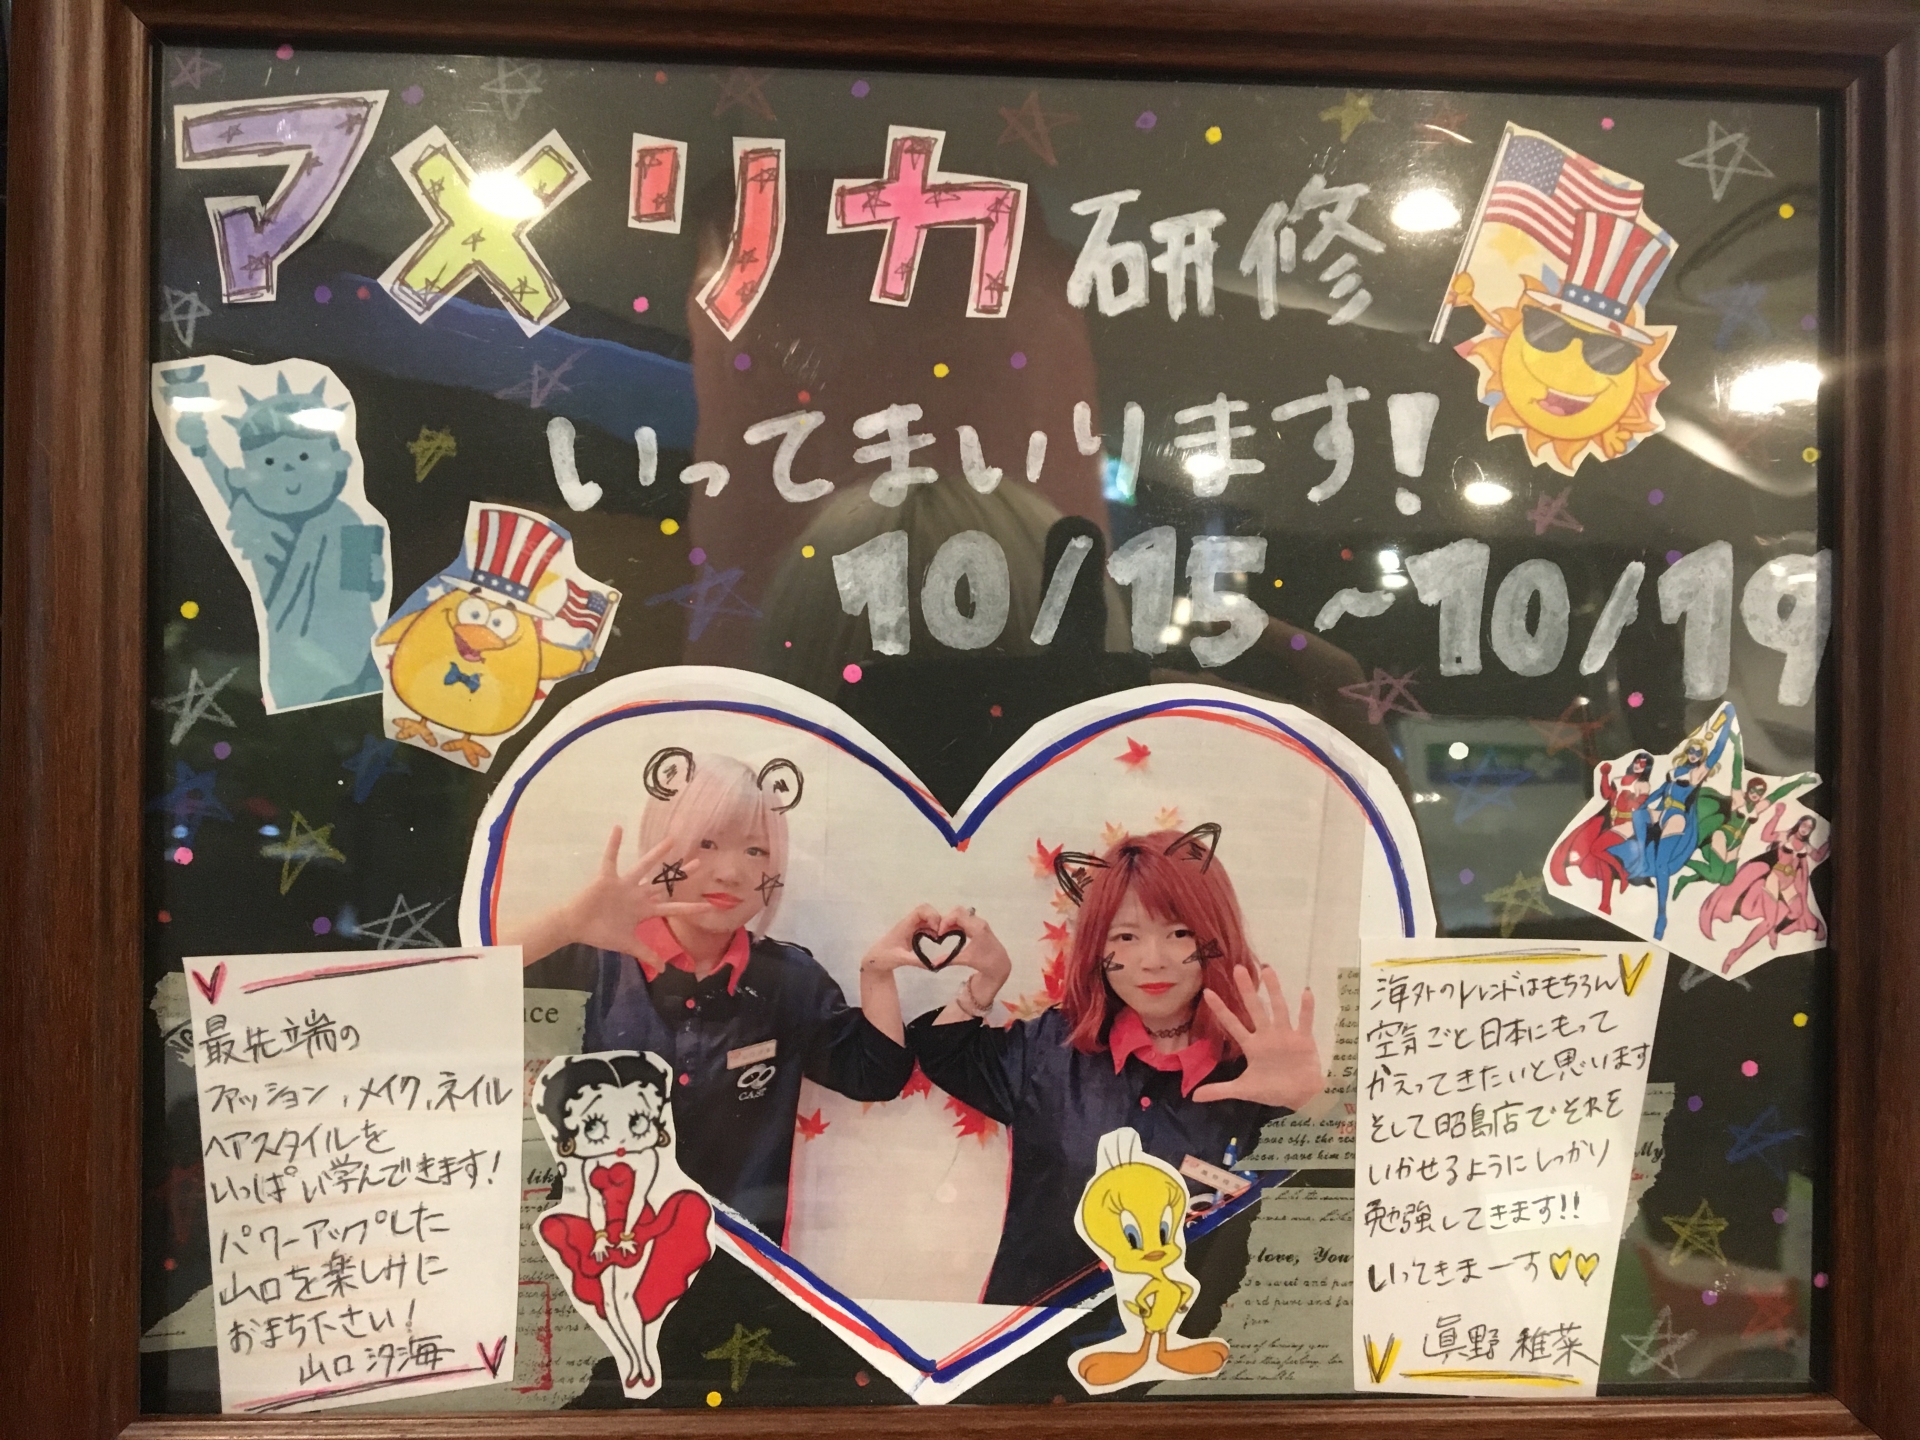 アメリカ研修
いってまいります!
10/15~10/19
最先端の
ファッション、メイク、ネイル
ヘアスタイルを
いっぱい学んできます!
パワーアップした
山口を楽しみに
おまち下さい!
山口 汐海
海外のトレンドはもちろん
空気ごと日本にもって
かえってきたいと思います
そして昭島店でそれを
いかせるようにしっかり
勉強してきます!!
いってきまーす
眞野 稚菜
love, You
My